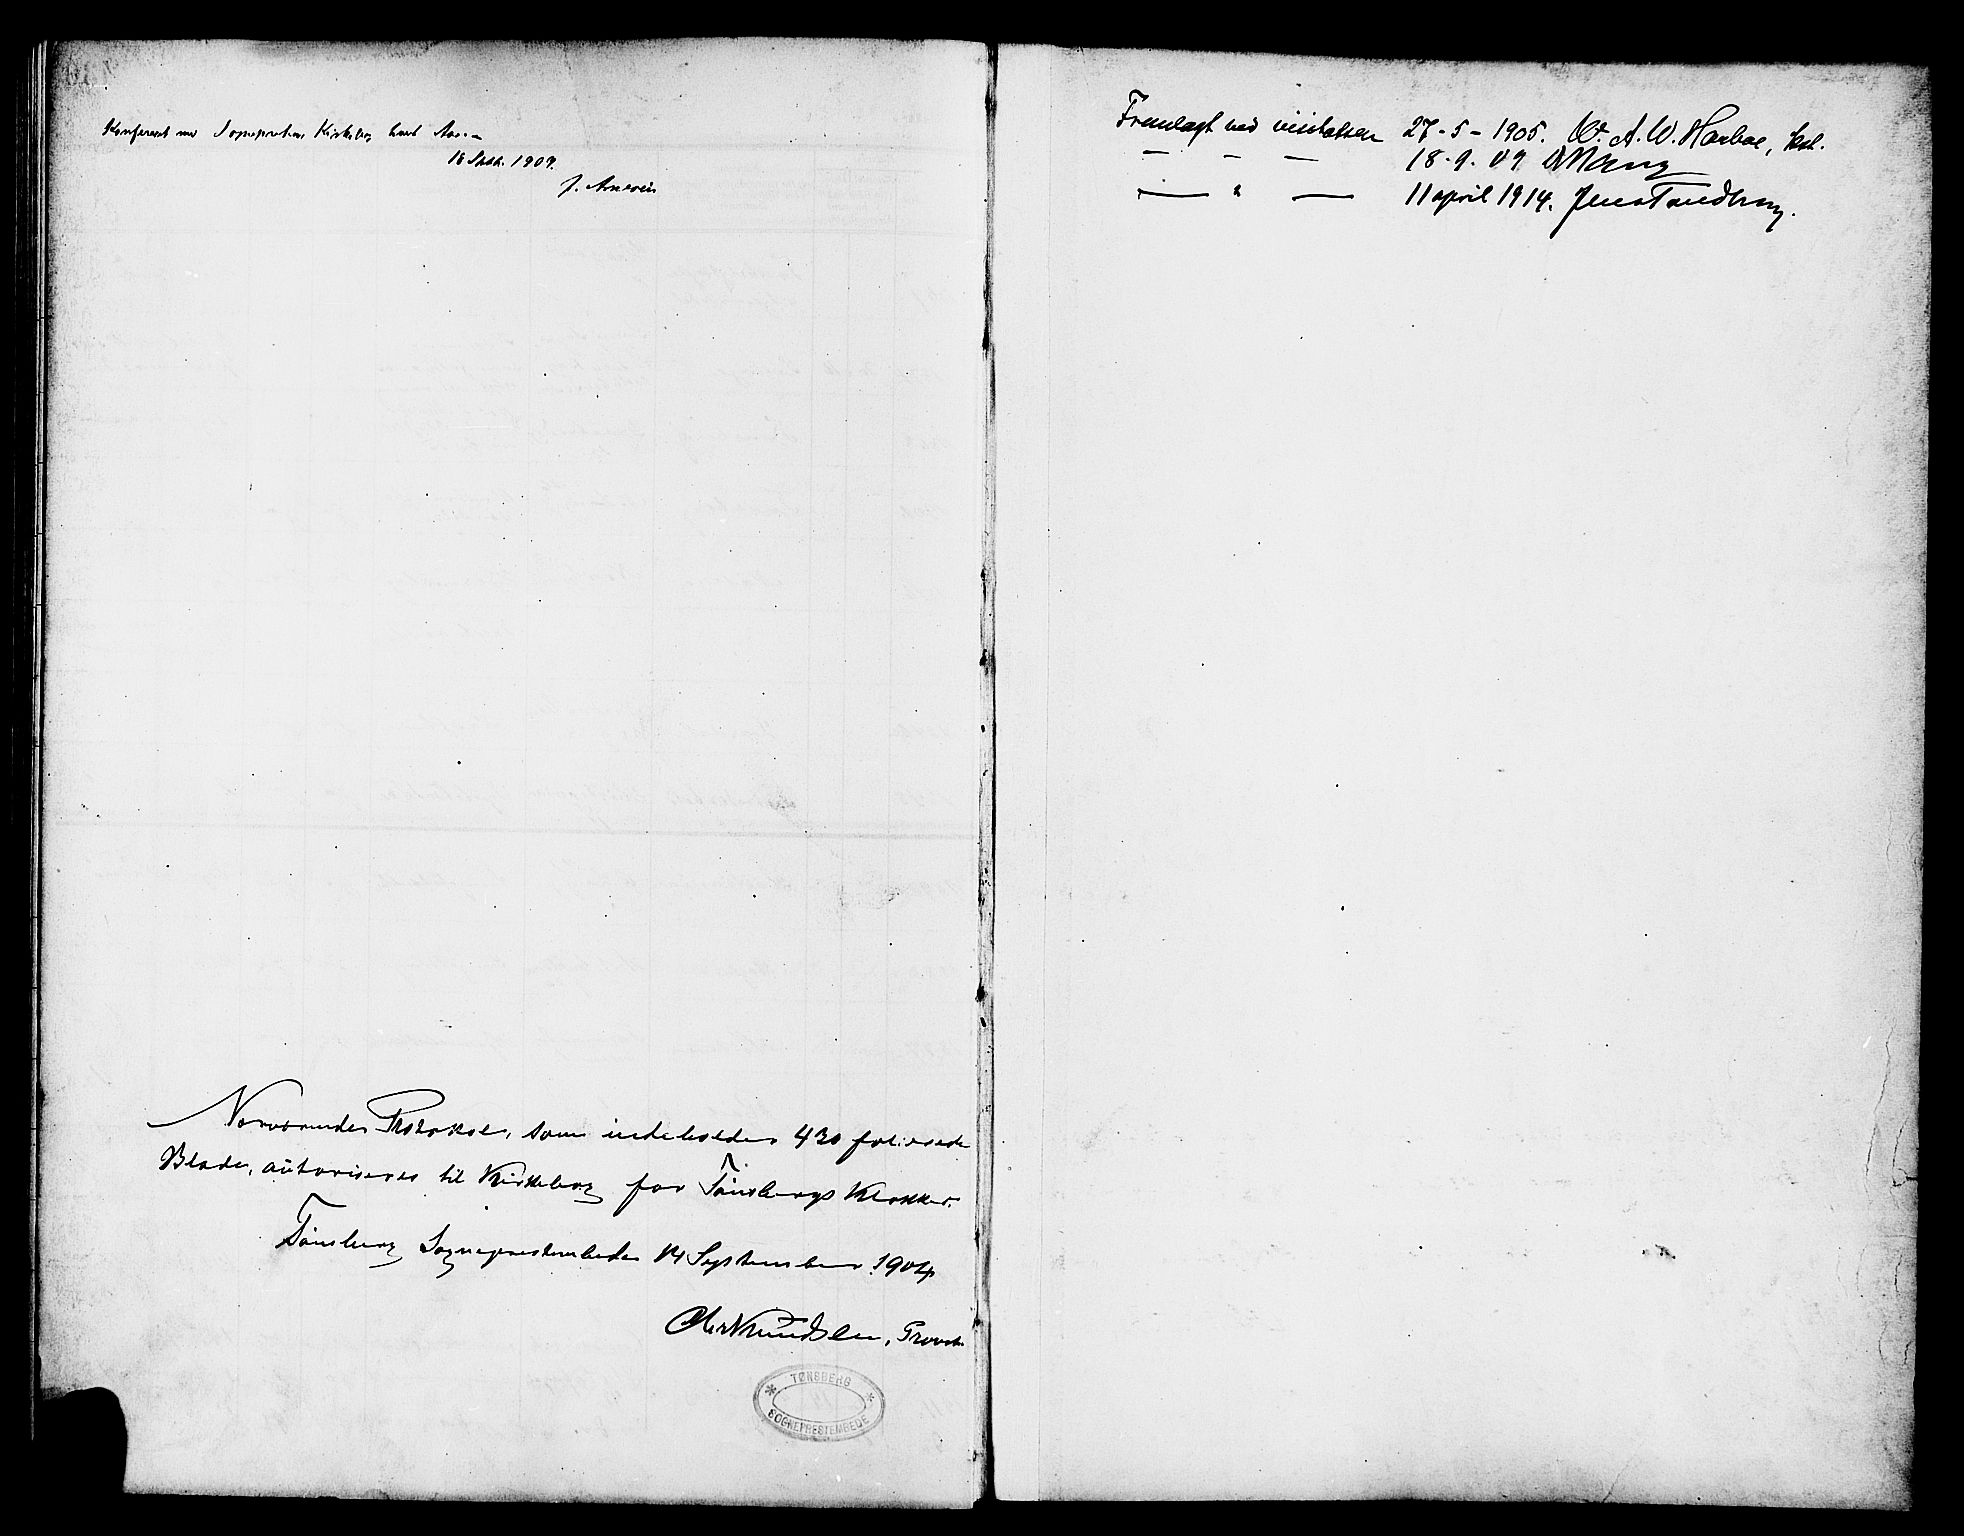 Konfereret med Sognepræstens Kirkebog
16 Septb. 1909.
J.
Nærværende Protokol, som indeholder 430 folierede
Blade, autoriseres til Kirkebog for Tønsbergs Klokker.
Tønsberg Sogneprestembede 14 September 1904
Chr Knudsen, Provst.
TØNSBERG
SOGNEPRESTEMBEDE
Fremlagt ved visitatsen 27-5-1905. A. W. Harboe, kst.
— - — 18.9.09
— " — 11 april 1914. Jens Tandberg.